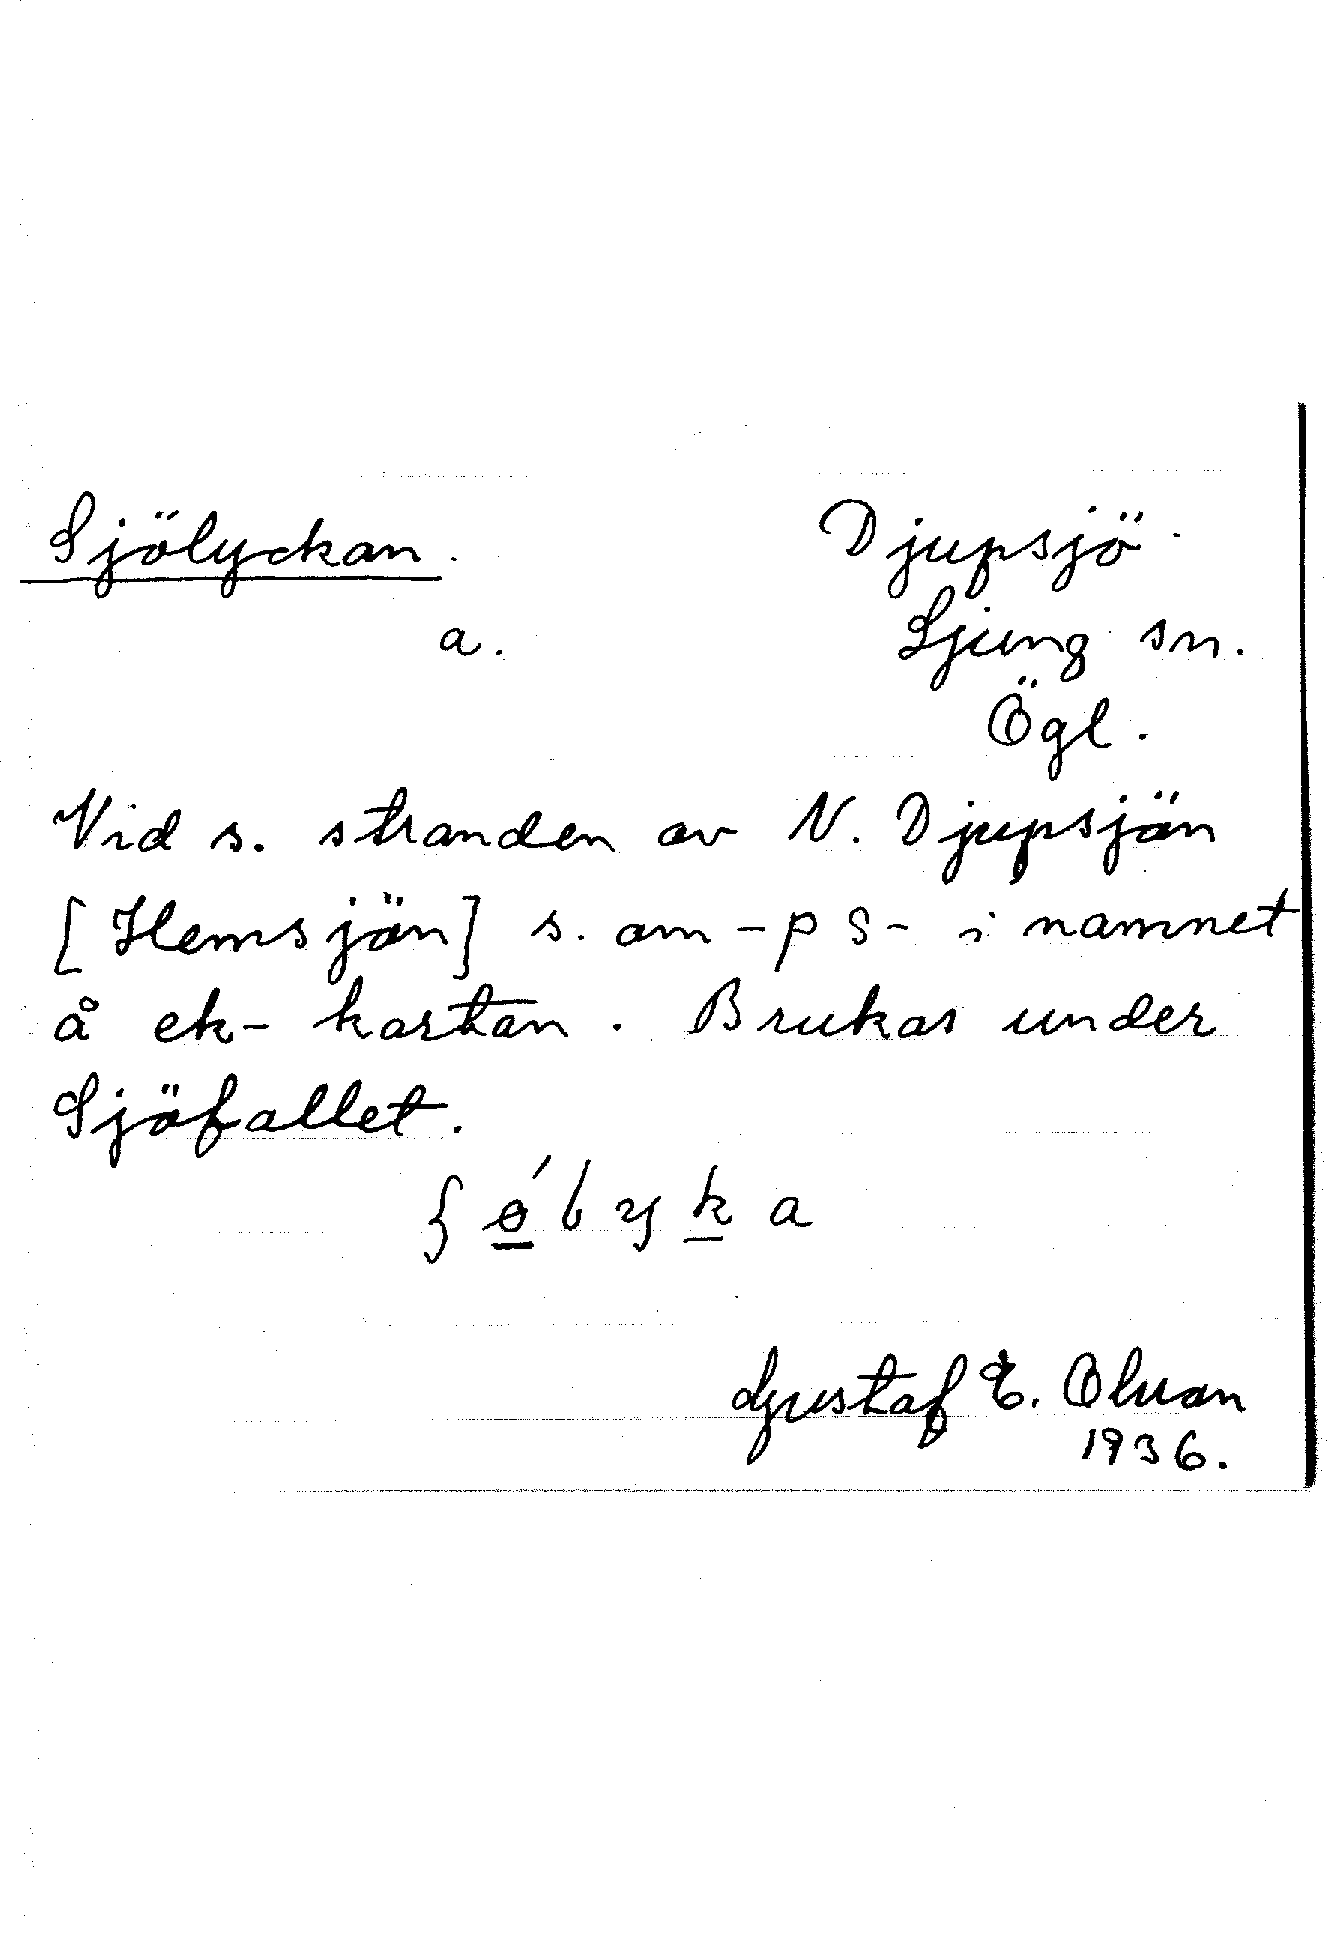 Sjölyckan.
Djupsjö
a.
Ljung sn.
Ögl.
Vid s. stranden av N. Djupsjön
[Hemsjön] s. om -p s- i namnet
å ek-kartan. Brukas under
Sjöfallet.
a
Gustaf E. Olsson
1936.